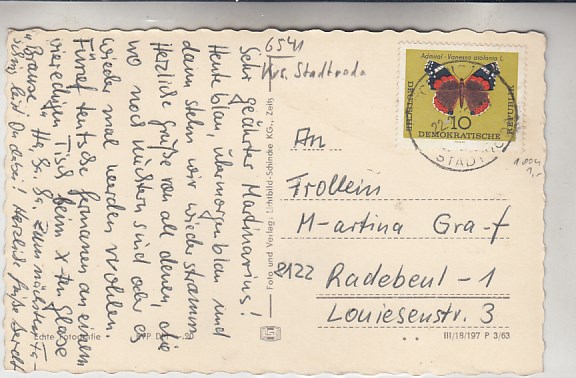 Sehr geehrter Martinarius!
Heute blau, übermorgen blau und
dann stehn wir wieder stramm
Herzliche Grüße von all denen die
wo noch nüchtern sind oder es
wieder mal werden wollen.
Fünef teutsche Germanen an einem
viereckigen Tisch beim X-ten Glase
Brause! Ha, Ha, Ha, Zum nächsten
bist Du dabei! Herzliche Grüße
6541
Krs. Stadtroda
An
Frollein
M-artina Gra-f
8122 Radebeul-1
Louisenstr. 3
Admiral - Vanessa atalanta L.
DEUTSCHE
DEMOKRATISCHE
REPUBLIK
10
STADT
Foto und Verlag: Lichtbild-Schincke KG., Zeitz
Echte Fotografie
III/18/197 P 3/63